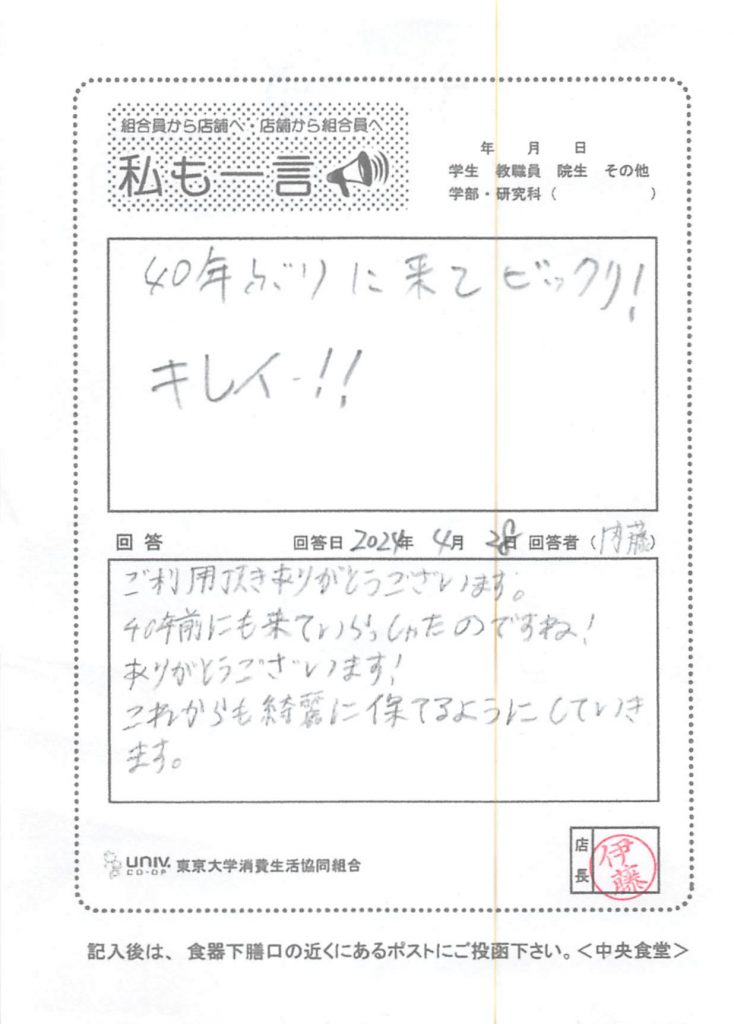 組合員から店舗へ・店舗から組合員へ
私も一言
年 月 日
学生 教職員 院生 その他
学部・研究科( )
40年ぶりに来てビックリ!
キレイー!!
回答 回答日 2024年 4月 28日 回答者(内藤)
ご利用頂きありがとうございます。
40年前にも来ていらっしゃたのですね!
ありがとうございます!
これからも綺麗に保てるようにしていき
ます。
UNIV. CO-OP 東京大学消費生活協同組合
店長 伊藤
記入後は、食器下膳口の近くにあるポストにご投函下さい。<中央食堂>